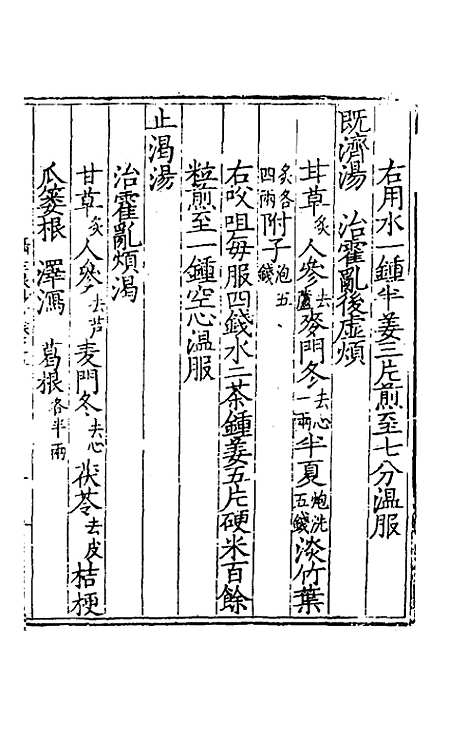 右用水一鍾半姜三片煎至七分温服
既濟湯　治霍亂後虚煩
甘草炙人參去蘆麥門冬去心一兩半夏炮洗五錢淡竹葉
炙各四兩附子泡五錢
右㕮咀毎服四錢水二茶鍾姜五片硬米百餘
粒煎至一鍾空心温服
止渴湯
治霍亂煩渴
甘草炙人參去芦麦門冬去心茯苓去皮桔梗
瓜蔞根　澤瀉　葛根各半兩